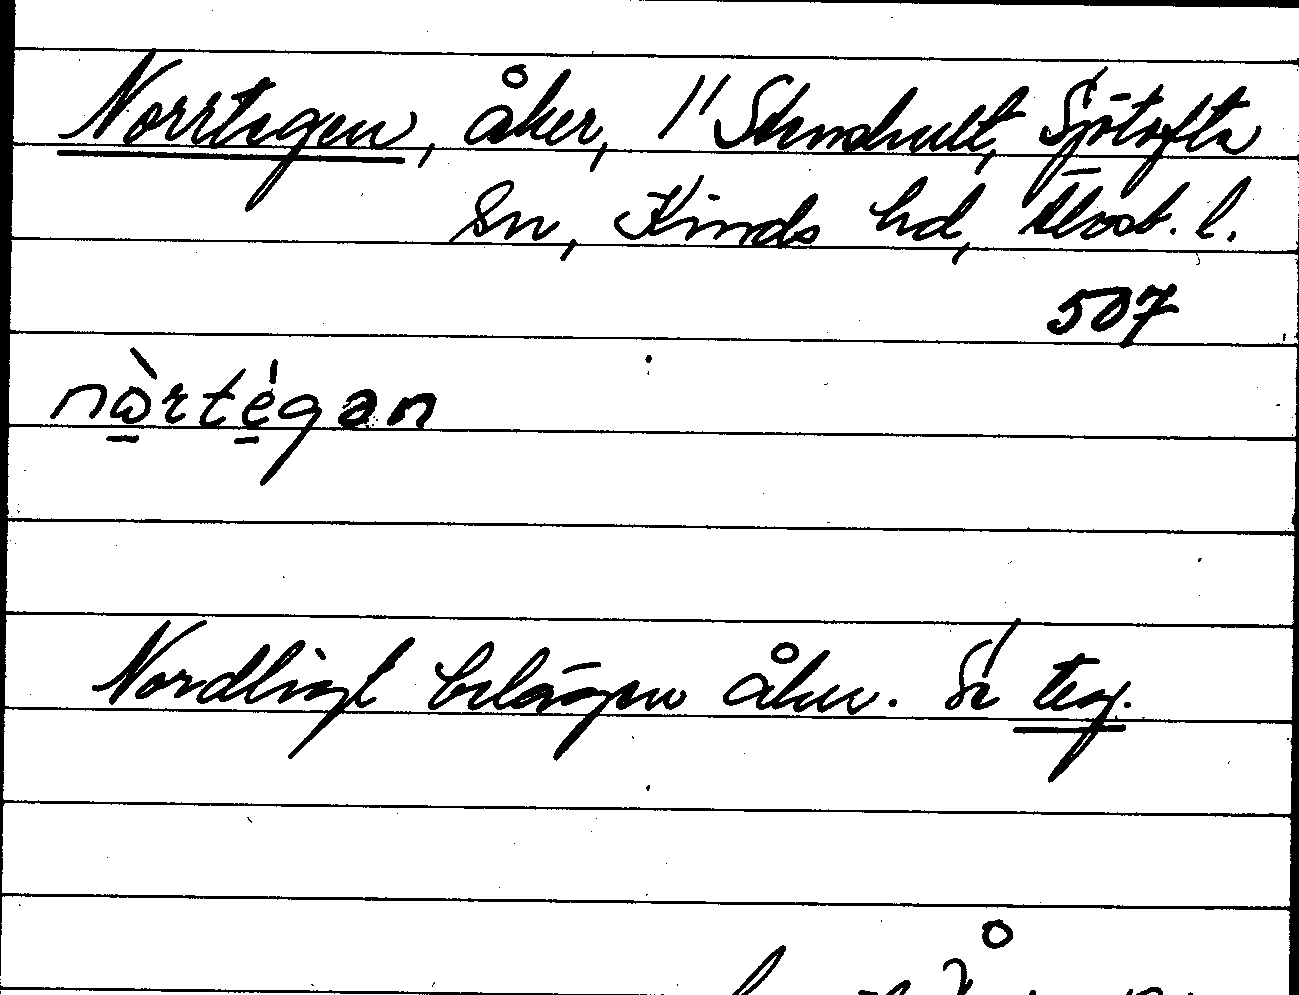 Norrtegen, åker, 1/1 Stendhult, Sjötofta
sn, Kinds hd, Älvsb. l.
507
nòrtégan
Nordligt belägen åker. Se teg.